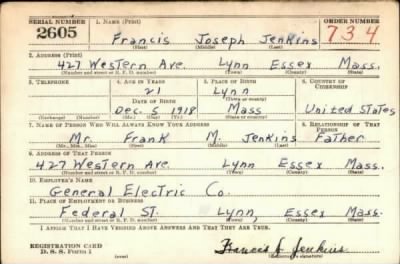 SERIAL NUMBER 1. NAME (Print) ORDER NUMBER
2605 Francis Joseph Jenkins 734
(First) (Middle) (Last)
2. ADDRESS (Print)
427 Western Ave. Lynn Essex Mass.
(Number and street or R. F. D. number) (Town) (County) (State)
3. TELEPHONE 4. AGE IN YEARS 5. PLACE OF BIRTH 6. COUNTRY OF CITIZENSHIP
21 Lynn
(Town or county)
DATE OF BIRTH
Dec. 5 1918 Mass United States
(Exchange) (Number) (Mo.) (Day) (Yr.) (State or country)
7. NAME OF PERSON WHO WILL ALWAYS KNOW YOUR ADDRESS 8. RELATIONSHIP OF THAT PERSON
Mr. Frank M. Jenkins Father
(Mr., Mrs., Miss) (First) (Middle) (Last)
9. ADDRESS OF THAT PERSON
427 Western Ave Lynn Essex Mass.
(Number and street or R. F. D. number) (Town) (County) (State)
10. EMPLOYER'S NAME
General Electric Co.
11. PLACE OF EMPLOYMENT OR BUSINESS
Federal St. Lynn, Essex Mass.
(Number and street or R. F. D. number) (Town) (County) (State)
I AFFIRM THAT I HAVE VERIFIED ABOVE ANSWERS AND THAT THEY ARE TRUE.
REGISTRATION CARD
D. S. S. Form 1 (over) Francis J. Jenkins